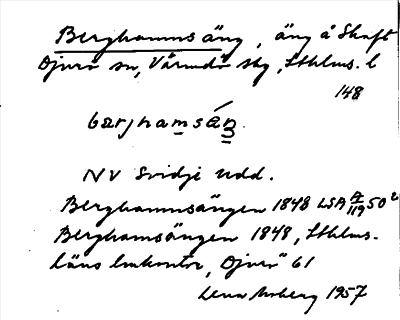 Berghamnsäng, äng å Skaft
Djurö sn, Värmdö skg, Sthlms. l
148
bærjhamsäŋ.
NV Svidje udd.
Berghamnsängen 1848 LSA A 119 50²
Berghamsängen 1848, Sthlms.
läns lmkontor, Djurö 61
Lena Moberg 1957